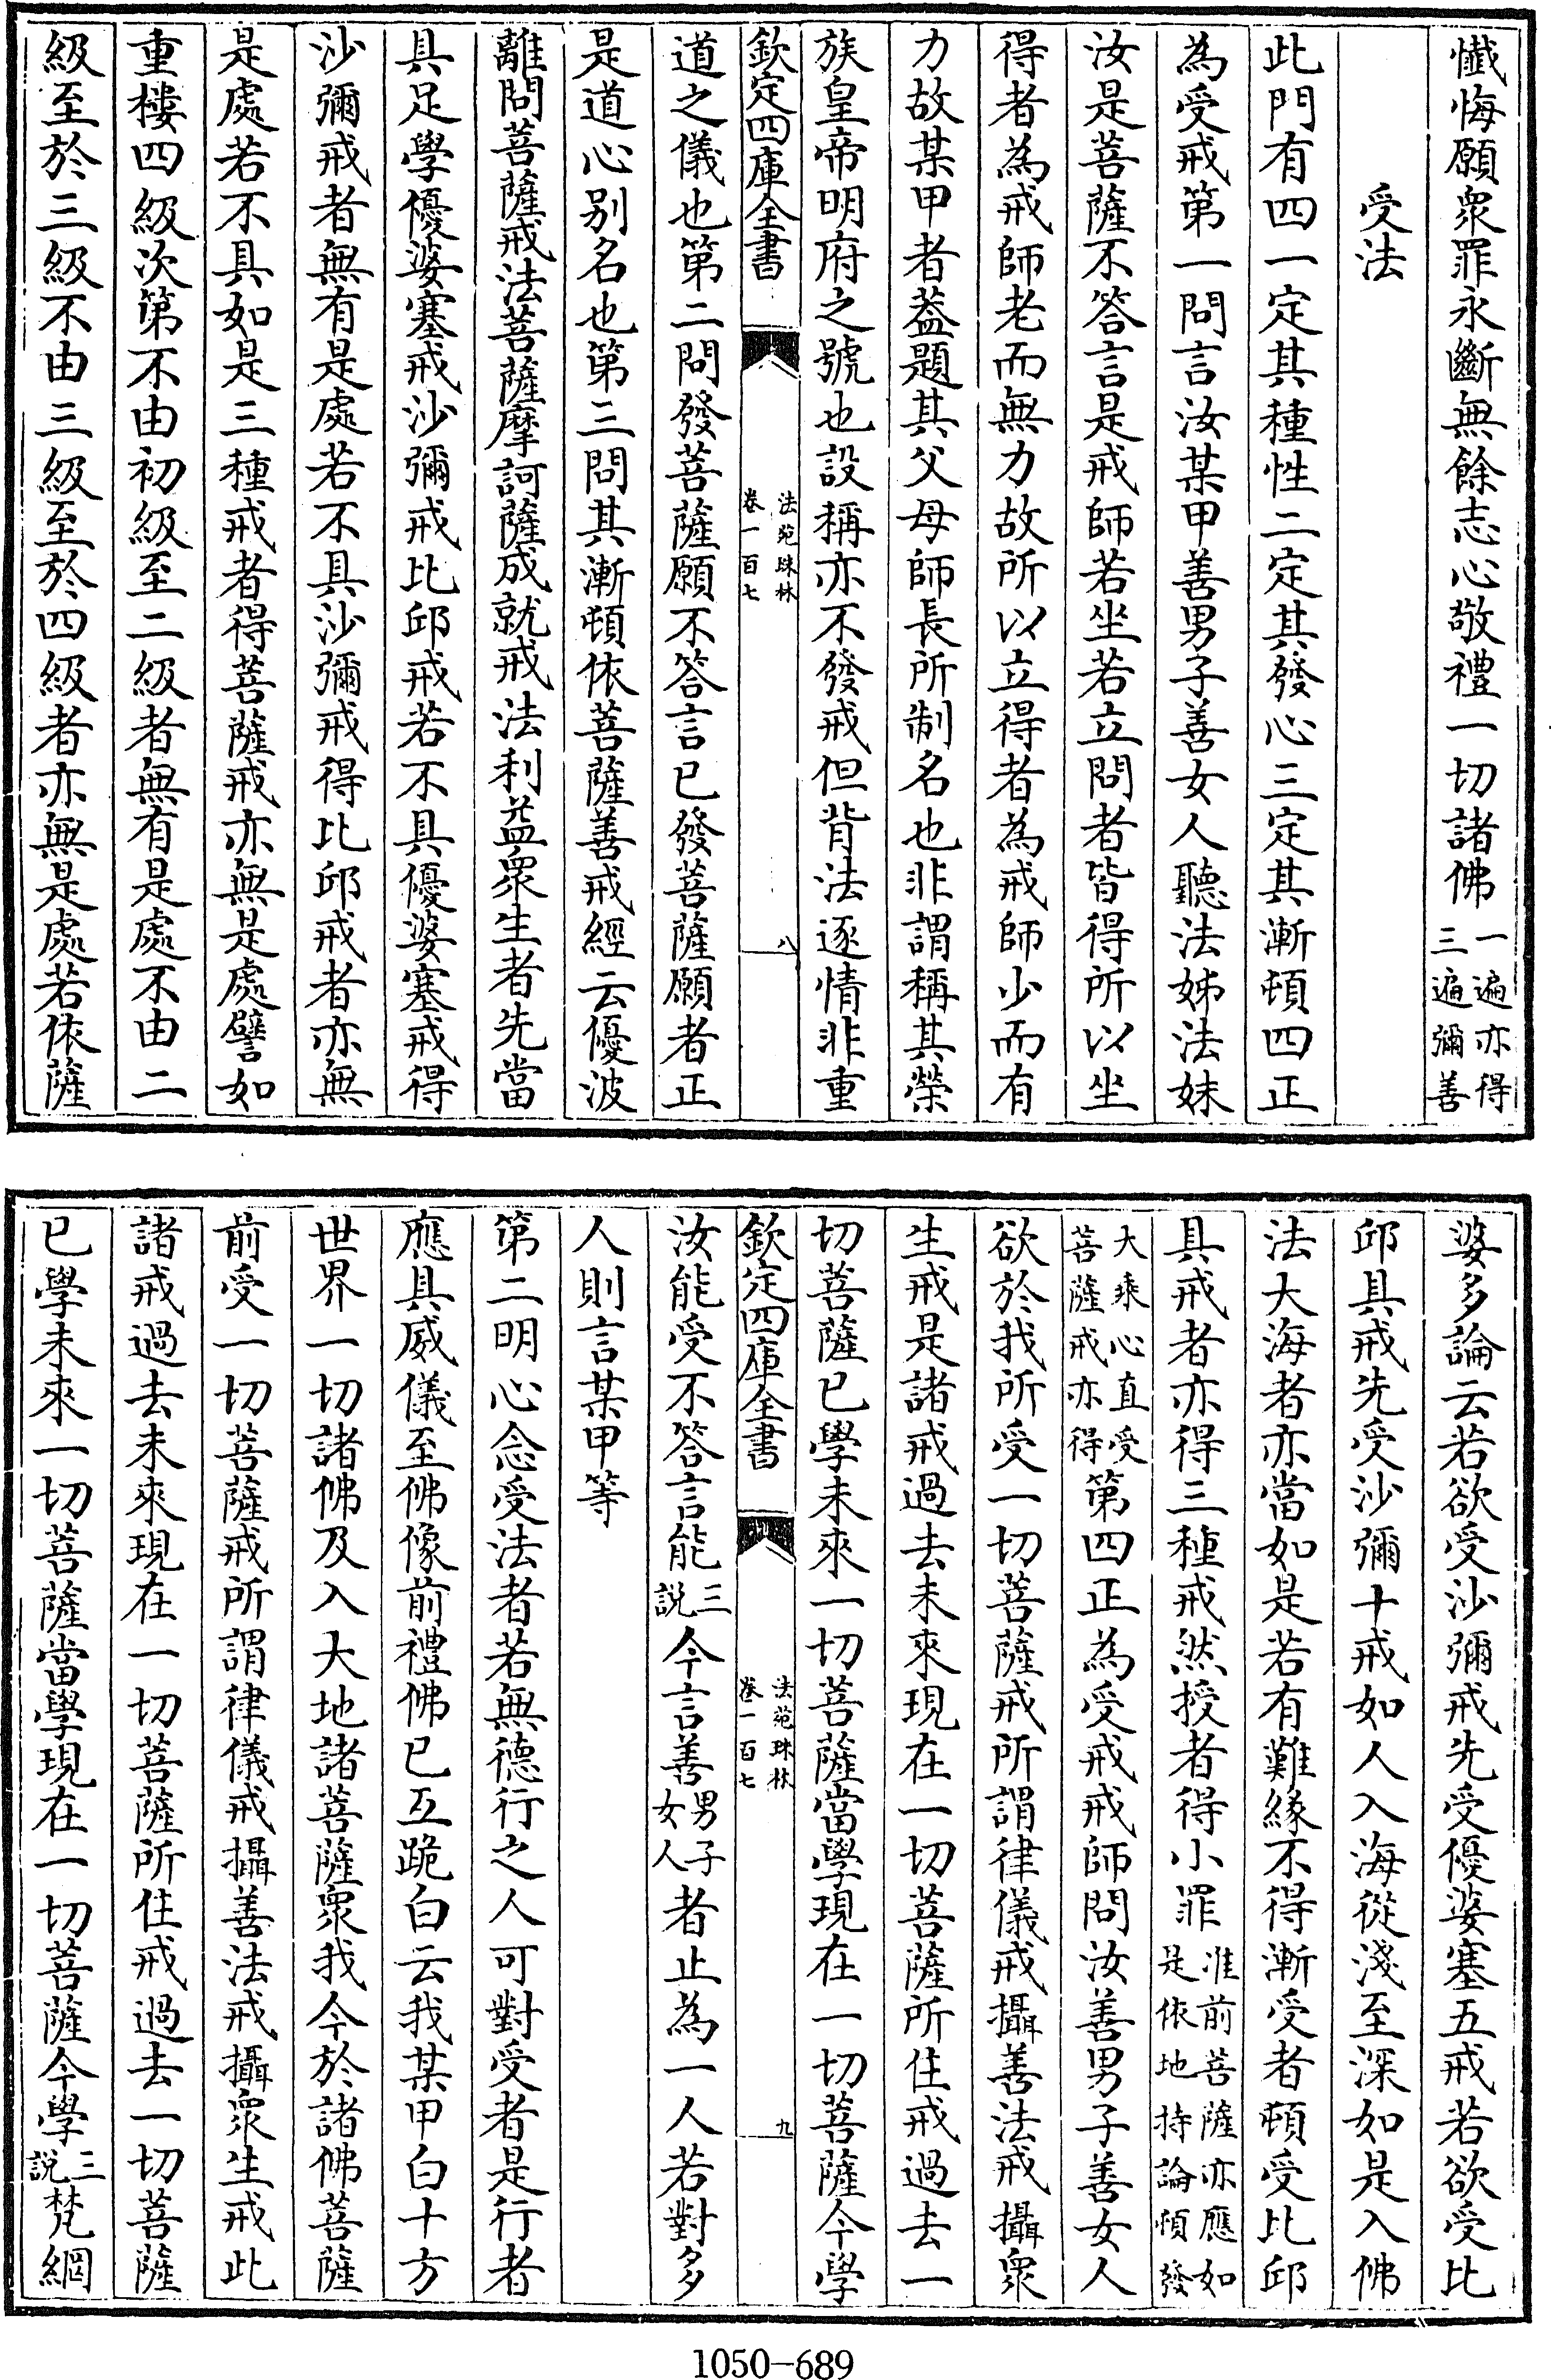 懺悔願衆罪永斷無餘志心敬禮一切諸佛一遍亦得三遍彌善
受法
此門有四一定其種性二定其發心三定其漸頓四正
為受戒第一問言汝某甲善男子善女人聽法姊法妹
汝是菩薩不答言是戒師若坐若立問者皆得所以坐
得者為戒師老而無力故所以立得者為戒師少而有
力故某甲者葢題其父母師長所制名也非謂稱其榮
族皇帝明府之號也設稱亦不發戒但背法逐情非重
欽定四庫全書
法苑珠林
卷一百七
八
道之儀也第二問發菩薩願不答言已發菩薩願者正
是道心别名也第三問其漸頓依菩薩善戒經云優波
離問菩薩戒法菩薩摩訶薩成就戒法利益衆生者先當
具足學優婆塞戒沙彌戒比邱戒若不具優婆塞戒得
沙彌戒者無有是處若不具沙彌戒得比邱戒者亦無
是處若不具如是三種戒者得菩薩戒亦無是處譬如
重樓四級次第不由初級至二級者無有是處不由二
級至於三級不由三級至於四級者亦無是處若依薩
婆多論云若欲受沙彌戒先受優婆塞五戒若欲受比
邱具戒先受沙彌十戒如人入海從淺至深如是入佛
法大海者亦當如是若有難緣不得漸受者頓受比邱
具戒者亦得三種戒然授者得小罪准前菩薩亦應如是依地持論頓發
大乘心直受菩薩戒亦得第四正為受戒戒師問汝善男子善女人
欲於我所受一切菩薩戒所謂律儀戒攝善法戒攝衆
生戒是諸戒過去未來現在一切菩薩所住戒過去一
切菩薩已學未來一切菩薩當學現在一切菩薩今學
欽定四庫全書
法苑珠林
卷一百七
九
汝能受不答言能三說今言善男子女人者止為一人若對多
人則言某甲等
第二明心念受法者若無德行之人可對受者是行者
應具威儀至佛像前禮佛已互跪白云我某甲白十方
世界一切諸佛及入大地諸菩薩衆我今於諸佛菩薩
前受一切菩薩戒所謂律儀戒攝善法戒攝衆生戒此
諸戒過去未來現在一切菩薩所住戒過去一切菩薩
已學未來一切菩薩當學現在一切菩薩今學三說梵網
1050-689